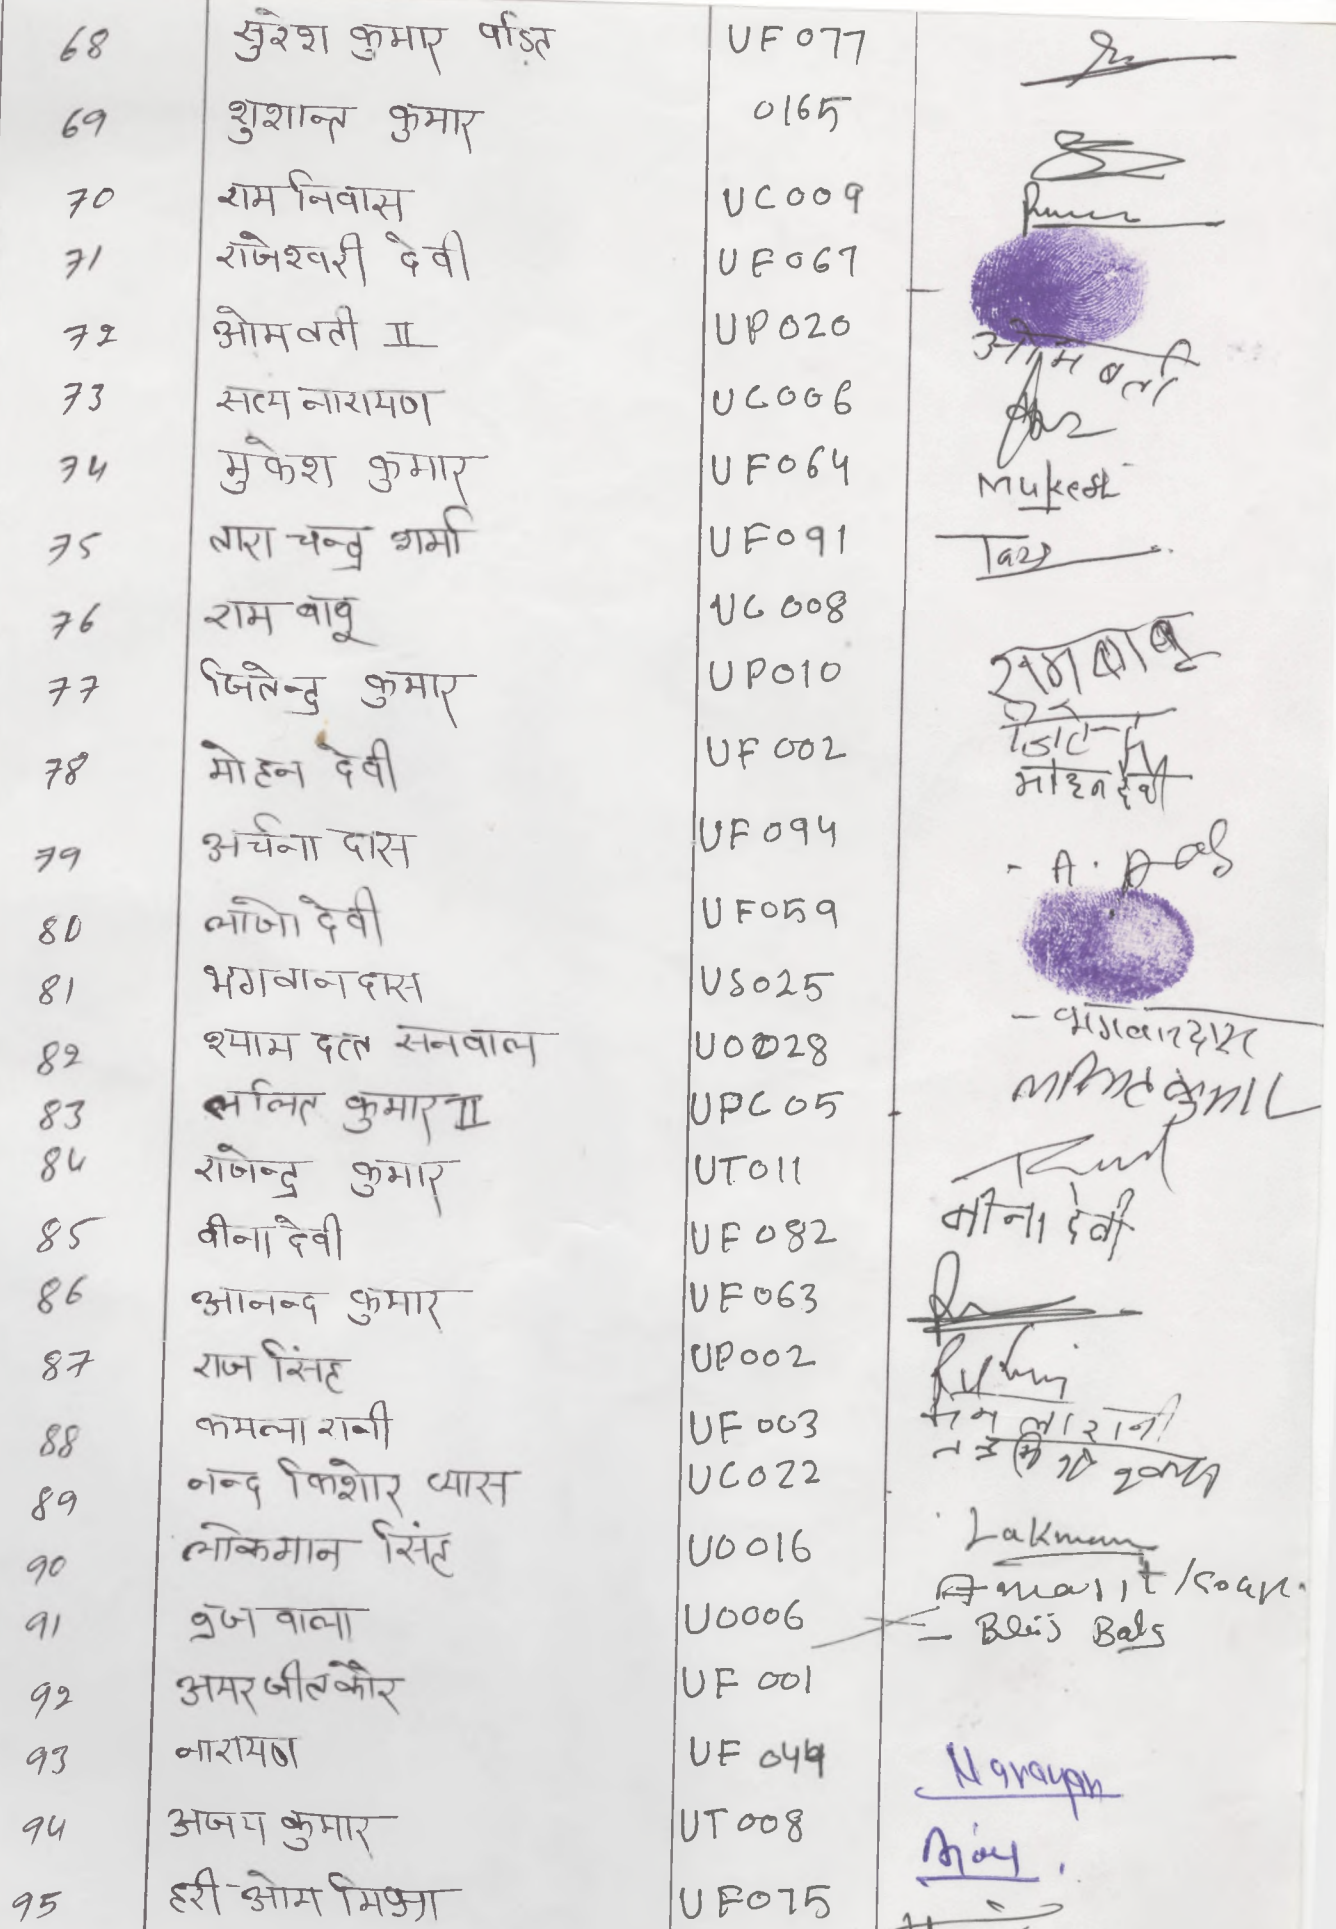 68 सुरेश कुमार पंडित UF077
69 शुशान्त कुमार 0165
70 राम निवास UC009
71 राजेश्वरी देवी UF067
72 ओमवती II UP020 ओम वती
73 सत्य नारायण UC006
74 मुकेश कुमार UF064 Mukesh
75 तारा चन्द्र शर्मा UF091 Tara
76 राम बाबू UC008 रामबाबू
77 जितेन्द्र कुमार UP010
78 मोहन देवी UF002 मोहन देवी
79 अर्चना दास UF094 - A. Das
80 लाजो देवी UF059
81 भगवान दास US025 - भगवानदास
82 श्याम दत्त सनवाल UO028
83 ललित कुमार II UPC05 ललित कुमार
84 राजेन्द्र कुमार UT011
85 वीना देवी UF082 वीना देवी
86 आनन्द कुमार UF063
87 राज सिंह UP002
88 कमला रानी UF003 कमला रानी
89 नन्द किशोर व्यास UC022
90 लोकमान सिंह UO016 Lakman
91 ब्रज वाला UO006 Amarjit Kaur.
- Brij Bala
92 अमरजीत कौर UF001
93 नारायण UF044 Narayan
94 अजय कुमार UT008 Ajay.
95 हरी ओम मिश्रा UF075